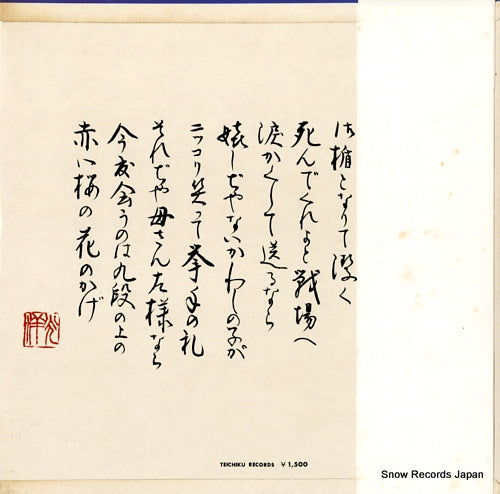 御楯となりて潔く
死んでくれよと戦場へ
涙かくして送るなら
嬉しじやないかわしの子が
ニッコリ笑って挙手の礼
それじや母さん左様なら
今度会うのは九段の上の
赤い桜の花のかげ
TEICHIKU RECORDS ￥1,500
Snow Records Japan